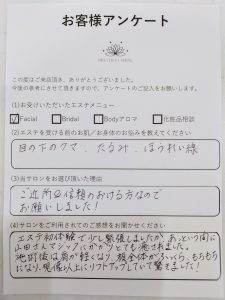 お客様アンケート
この度はご来店頂き、ありがとうございました。
今後の参考にさせて頂きますので、アンケートのご記入をお願いします。
(1)お受けいただいたエステメニュー
Facial Bridal Bodyアロマ 化粧品相談
(2)エステを受ける前のお肌／お身体のお悩みを教えてください
目の下のクマ、たるみ、ほうれい線
(3)当サロンをお選び頂いた理由
ご近所&信頼のおける方なので
お願いしました!
(4)サロンをご利用されてのご感想をお聞かせください
エステ初体験で少し緊張しましたが、あっという間に
山田さんマジックにかかりとても癒されました。
施術後は肩が軽くなり、顔全体がふっくら、もちもち
になり、見違える以上にリフトアップしていて驚きました!